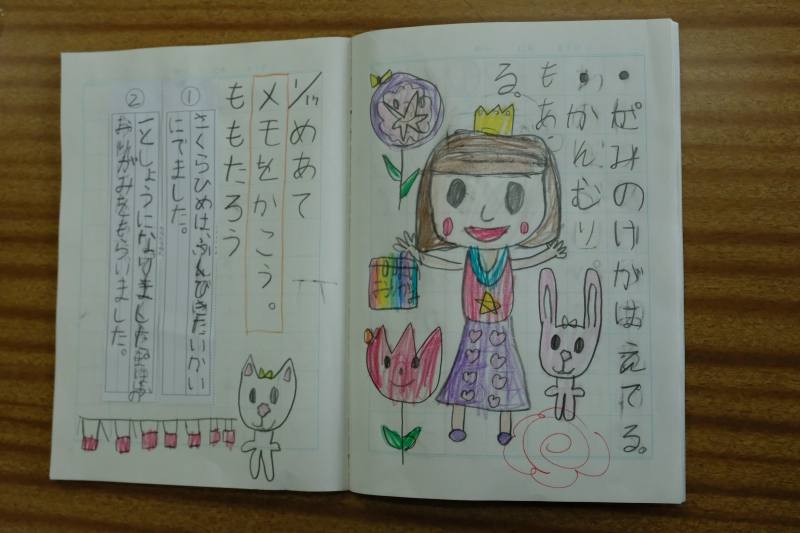 ・かみのけがはえてる。
・かんむり
もあ
る。
めあて
メモをかこう。
ももたろう
①
さくらひめは、たいかい
にでました。
②
一としょうになりました
おりがみをもらいました。